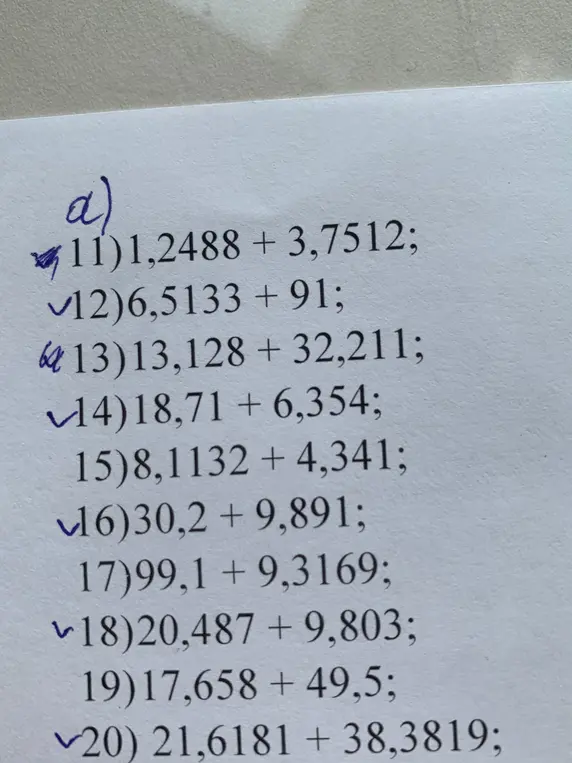 а)
11)1,2488 + 3,7512;
12)6,5133 + 91;
13)13,128 + 32,211;
14)18,71 + 6,354;
15)8,1132 + 4,341;
16)30,2 + 9,891;
17)99,1 + 9,3169;
18)20,487 + 9,803;
19)17,658 + 49,5;
20) 21,6181 + 38,3819;